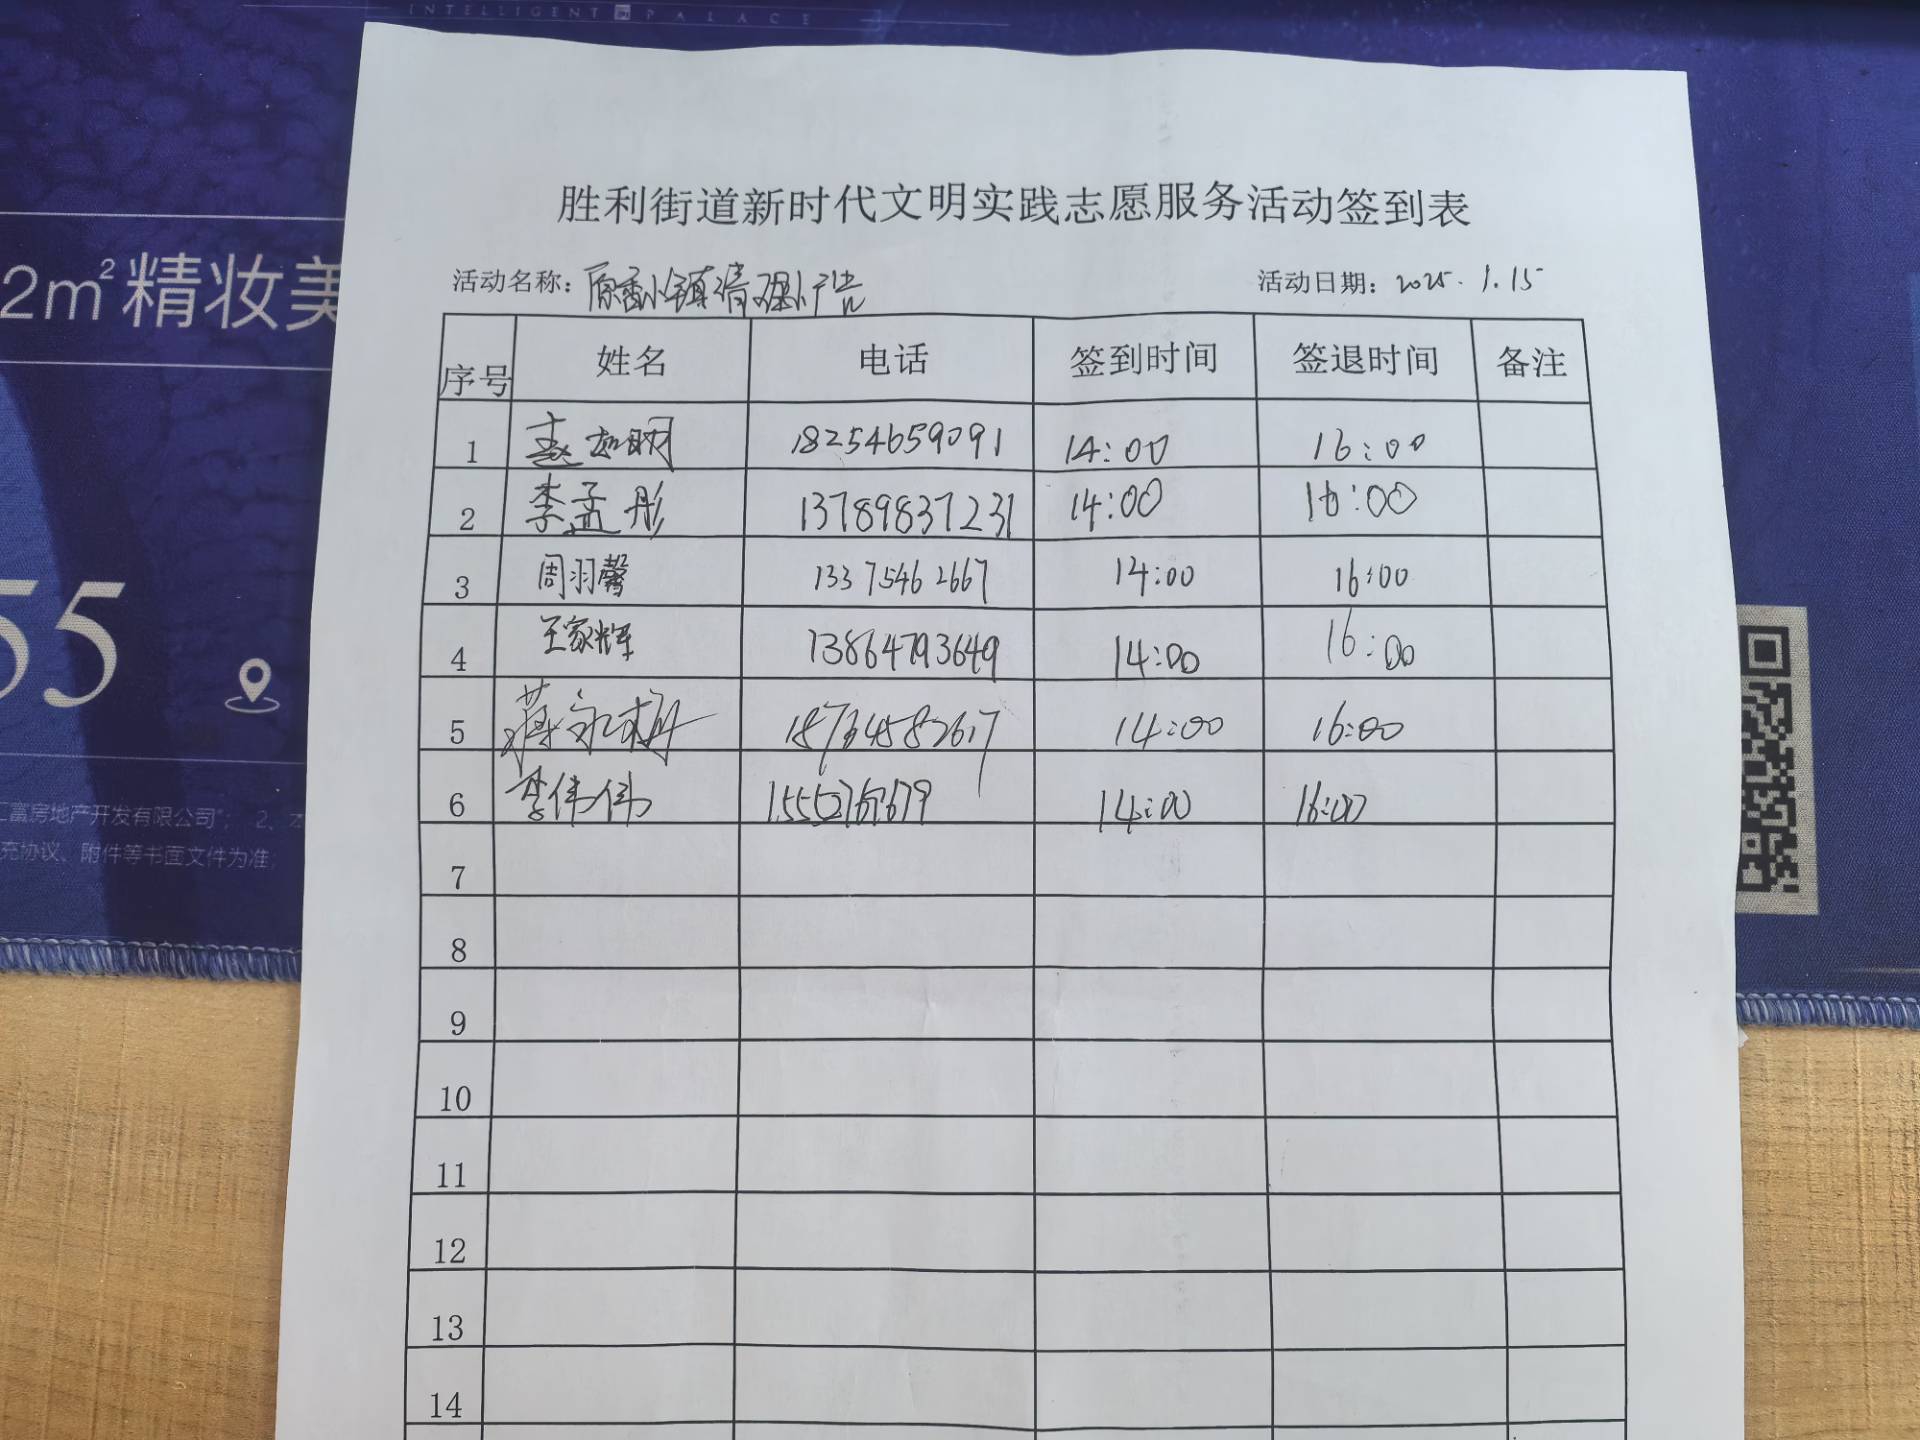 INTELLIGENT PALACE
胜利街道新时代文明实践志愿服务活动签到表
活动名称：原香小镇清理小广告 活动日期：2025.1.15
序号 姓名 电话 签到时间 签退时间 备注
1 赵如明 18254659091 14:00 16:00
2 李孟彤 13789837231 14:00 16:00
3 周羽馨 13375462667 14:00 16:00
4 王家辉 13864793649 14:00 16:00
5 蒋永梅 14:00 16:00
6 李伟伟 14:00 16:00
7
8
9
10
11
12
13
14
2m²精妆美
55
汇富房地产开发有限公司”； 2、本
充协议、附件等书面文件为准；